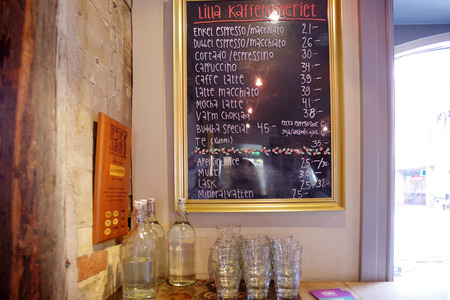 Lilla Kafferosteriet
Enkel espresso/macchiato 21:-
Dubbel espresso/macchiato 26:-
Cortado/espressino 30:-
Cappuccino 34:-
Caffe latte 39:-
Latte macchiato 39:-
Mocha latte 41:-
Varm choklad 38:-
Buddha special 45:-
Te (Kusmi) 35:-
juice 25:-/30
Must 30:-
Läsk 25:-/32
Mineralvatten 25:-